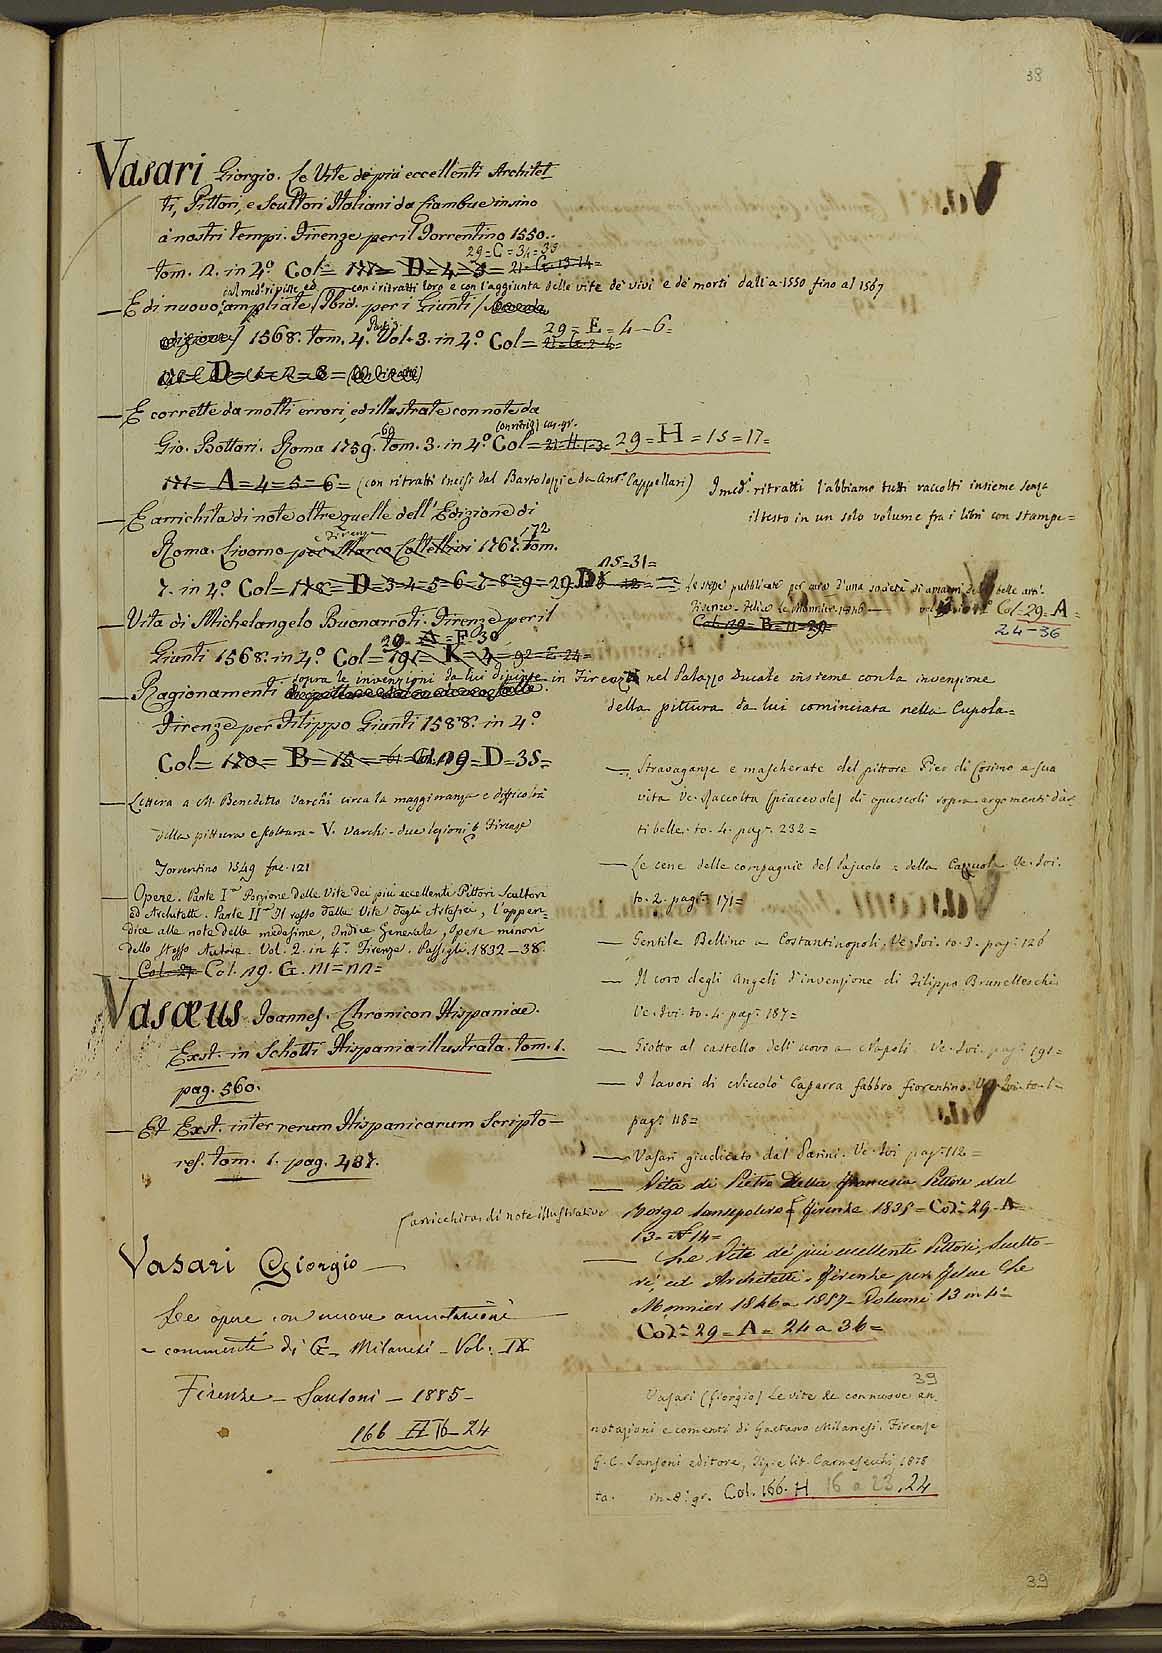 38
Vasari Giorgio. Le Vite de più eccellenti Architet-
ti, Pittori, e Scultori Italiani da Cimabue insino
a nostri tempi. Firenze per il Torrentino 1550.
29=C=34=35
tom. 2. in 4.º Col=
col med. ripiste, ed con i ritratti loro e con l'aggiunta delle vite de' vivi e de' morti dall'a. 1550 fino al 1567
— E di nuovo ampliate, Ibid. per i Giunti
1568. tom. 4. Vol. 3. in 4.º Col= 29=E=4-6=
— E corrette da molti errori, ed illustrate con note da
Gio. Bottari. Roma 1759. 60 tom. 3. in 4.º Col= 29=H=15=17=
(con ritratti incisi dal Bartolozzi e da Ant.º Cappellari) I med.i ritratti l'abbiamo tutti raccolti insieme senza
il testo in un solo volume fra i libri con stampe=
— E arrichita di note oltre quelle dell'Edizione di
Roma. Livorno e Firenze per Marco Coltellini 1767. 72 tom.
7. in 4.º Col= 29. D 15=31=
Le stesse pubblicate per cura d'una società di amatori delle belle arti.
Firenze. Felice Le Monnier 1846 — Col. 29=A=
24-36
— Vita di Michelangelo Buonarroti. Firenze per il
Giunti 1568. in 4.º Col= 29=A=F=30
— Ragionamenti sopra le invenzioni da lui dipinte in Firenze nel Palazzo Ducale insieme con la invenzione
della pittura da lui cominciata nella Cupola=
Firenze per Filippo Giunti 1588. in 4.º
Col= 19=D=35=
— Lettera a M. Benedetto Varchi circa la maggioranza e difficoltà
della pittura e scoltura. V. Varchi. due lezioni Firenze
Torrentino 1549 fac. 121
— Opere. Parte I.a Porzione delle Vite dei più eccellenti Pittori Scultori
ed Architetti. Parte II.a Il resto delle Vite degli Artefici, l'appen=
dice alle note delle medesime, Indice Generale, Opere minori
dello stesso Autore. Vol. 2. in 4.º Firenze. Passigli. 1832-38.
Col. 19. G. 11=12=
Vasæus Joannes. Chronicon Hispaniae.
Exst. in Schotti Hispania illustrata. tom. 1.
pag. 560.
— Et Exst. inter rerum Hispanicarum Scripto-
res. tom. 1. pag. 487.
Vasari Giorgio —
Le opere con nuove annotazioni
e commenti di G. Milanesi — Vol. IX
Firenze — Sansoni — 1885 —
166 H 16-24
— Stravaganze e mascherate del pittore Pier di Cosimo e sua
vita Ve. Raccolta (piacevole) di opuscoli sopra argomenti d'ar
ti belle. to. 4. pag. 232=
— Le cene delle compagnie del Pajuolo e della Cazzuola Ve. Ivi.
to. 2. pag. 171=
— Gentile Bellino a Costantinopoli, Ve. Ivi. to. 3. pag. 126
— Il coro degli angeli d'invenzione di Filippo Brunelleschi.
Ve. Ivi. to. 4. pag. 187=
— Giotto al castello dell'uovo a Napoli. Ve. Ivi. pag. 191=
— I lavori di Niccolò Caparra fabbro fiorentino. Ve. Ivi. to. 1-
pag. 118=
— Vasari giudicato dal Parini. Ve. Ivi pag. 112=
— Vita di Pietro Della Francesca Pittore dal
Borgo Sansepolcro (arricchita di note illustrative Firenze 1835= Col= 29=A=
13=14=
— Le Vite de' più eccellenti Pittori, Sculto-
ri, ed Architetti. Firenze per Felice Le
Monnier 1846 a 1857. Volumi 13 in 4º
Col= 29=A=24 a 36=
39
Vasari (Giorgio) Le vite &c con nuove an-
notazioni e comenti di Gaetano Milanesi. Firenze
G. C. Sansoni editore, Tip. e lit. Carnesecchi, 1878
ta. in-8º gr. Col. 166. H 16 a 23, 24
39